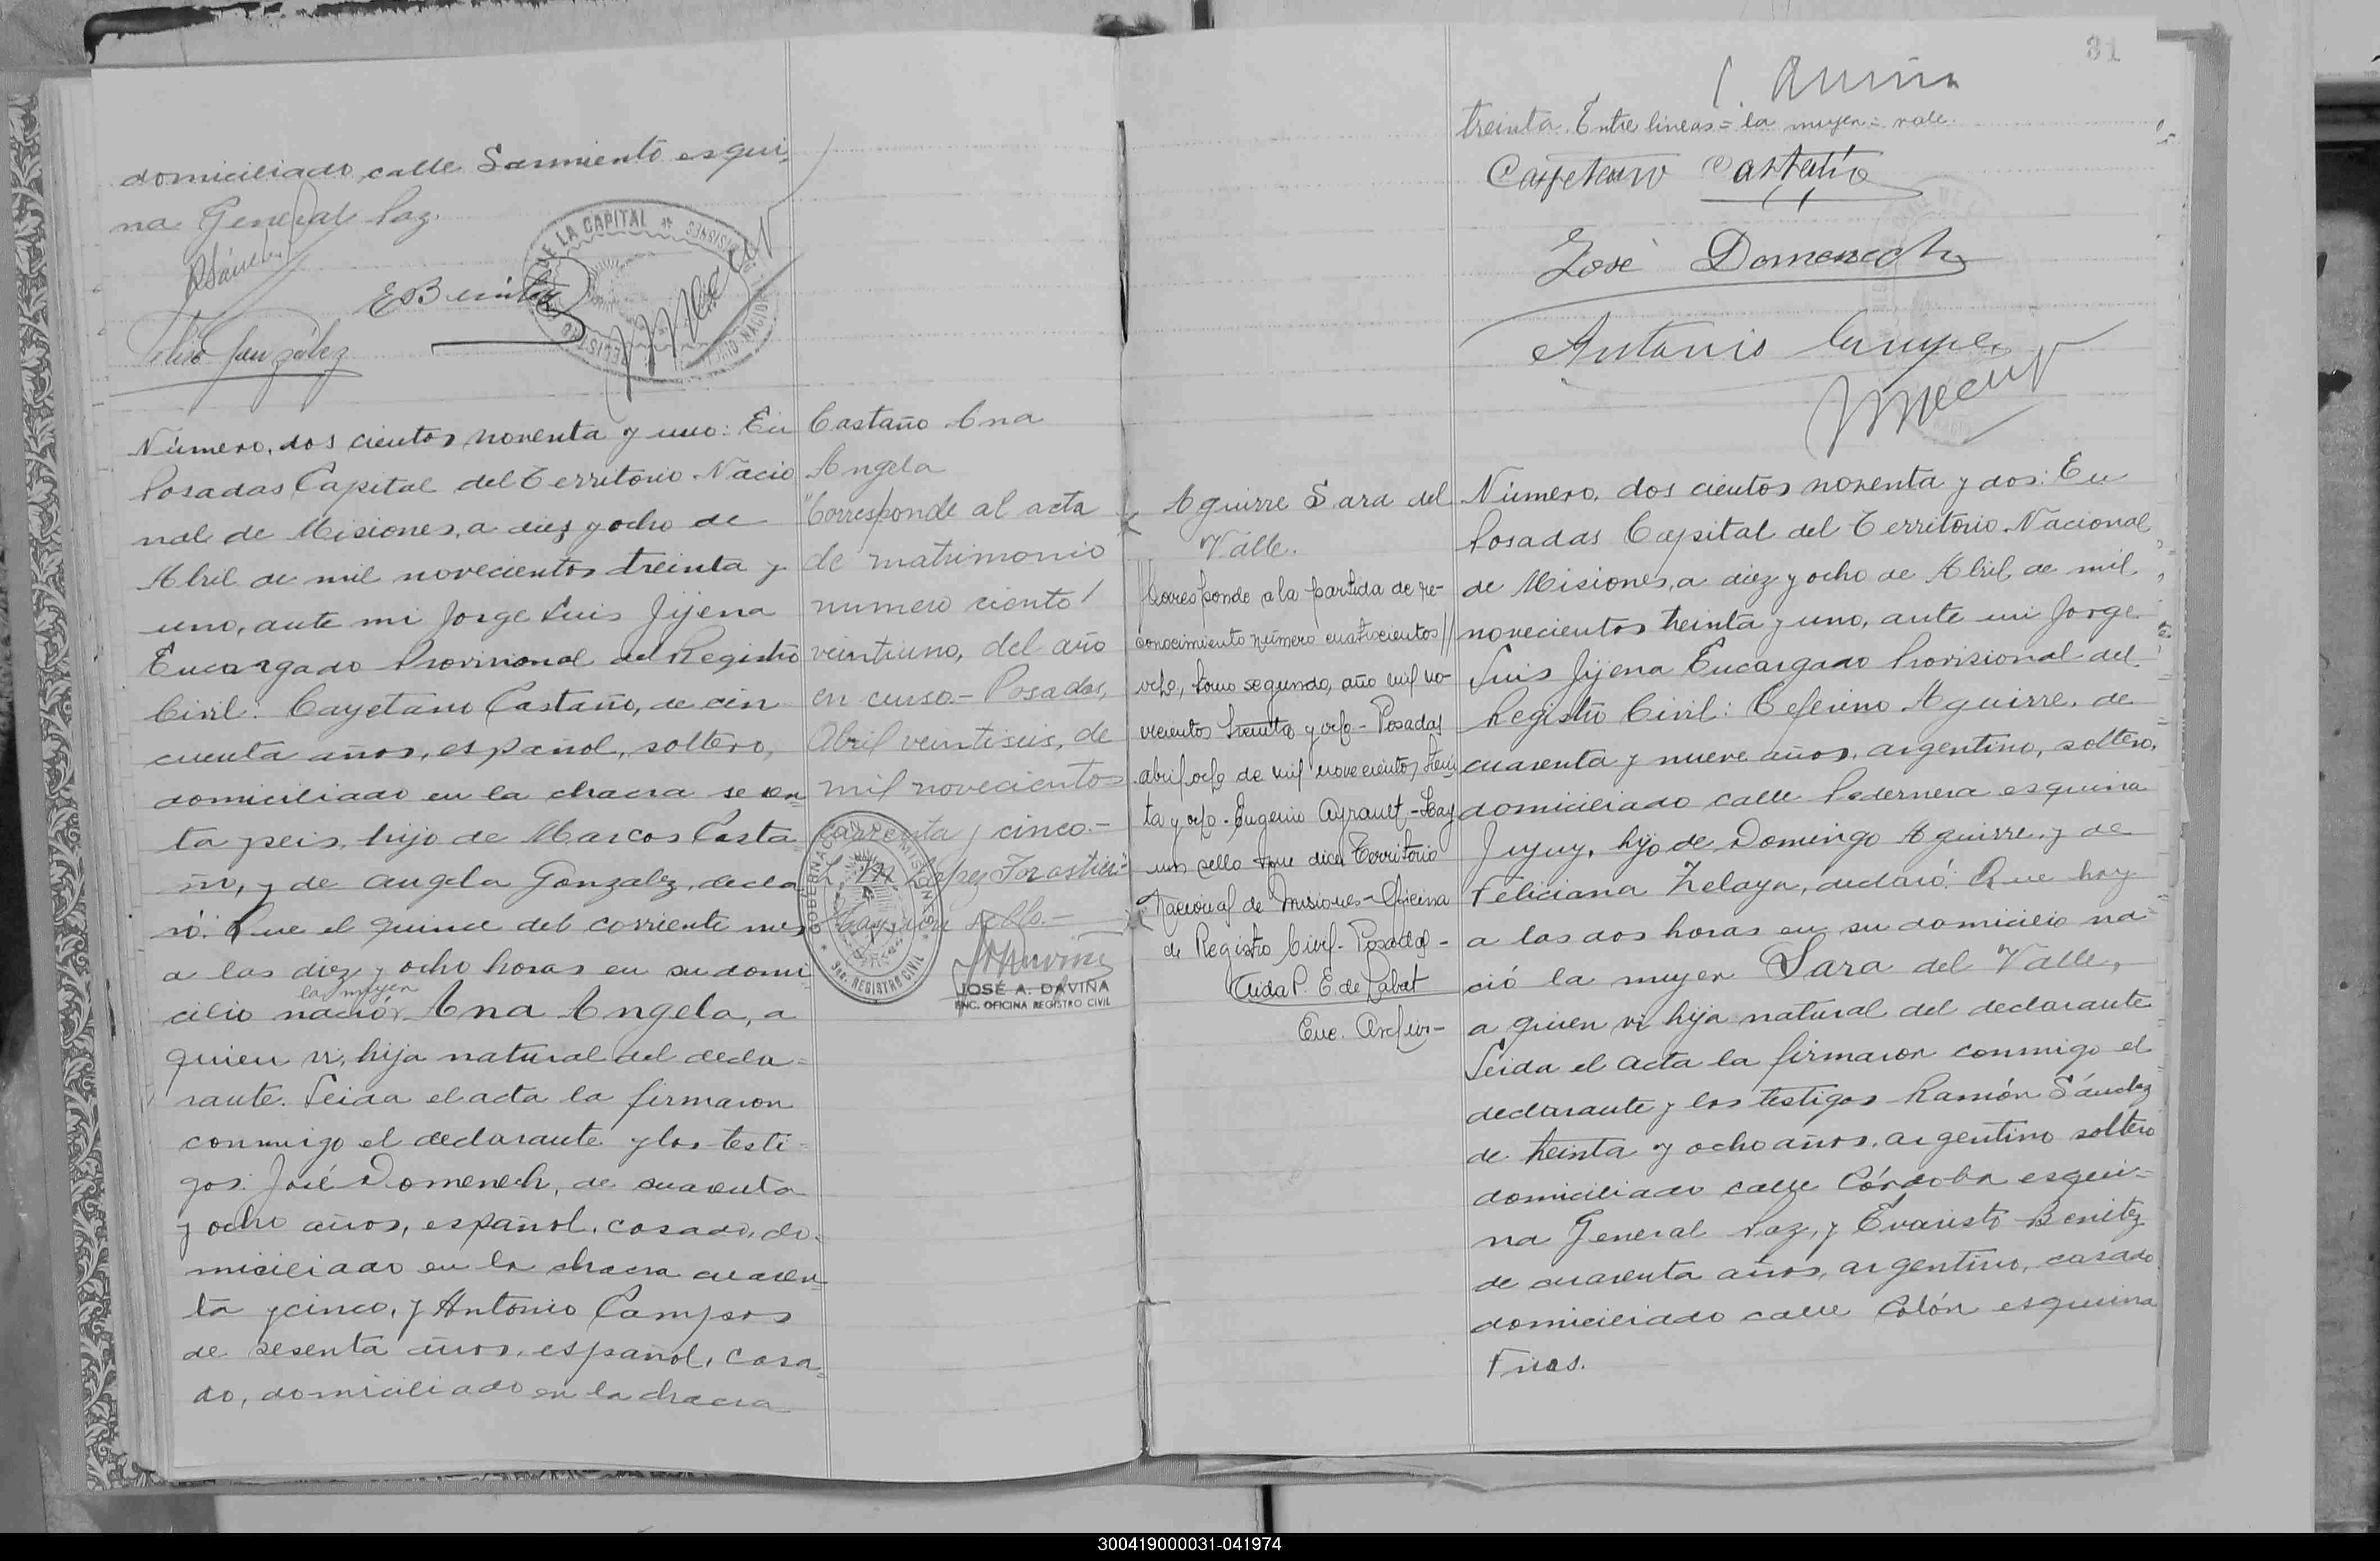 domiciliado calle Sarmiento esqui-
na General Paz.
RSánchez
EBenitez
Felix González
DE LA CAPITAL * MISIONES
Número, dos cientos noventa y uno: En
Posadas Capital del Territorio Nacio
nal de Misiones, a diez y ocho de
Abril de mil novecientos treinta y
uno, ante mi Jorge Luis Jijena
Encargado Provisional del Registro
Civil: Cayetano Castaño, de cin
cuenta años, español, soltero,
domiciliado en la chacra sesen-
ta y seis, hijo de Marcos Casta
ño, y de Angela Gonzalez, decla
ró: Que el quince del corriente mes
a las diez y ocho horas en su domi-
la mujer
cilio nació Ana Angela, a
quien vi, hija natural del decla-
rante. Leida el acta la firmaron
conmigo el declarante y los testi-
gos: José Domenech, de cuarenta
y ocho años, español, casado, do-
miciliado en la chacra cuaren-
ta y cinco, y Antonio Campos
de sesenta años, español, casa-
do, domiciliado en la chacra
Castaño Ana
Angela
"Corresponde al acta
de matrimonio
número ciento
veintiuno, del año
en curso.- Posadas,
Abril veintiseis, de
mil novecientos
cuarenta y cinco.-
L. M. López Forastier-
Hay un sello.-
GOBERNACION MISIONES
Sec. REGISTRO CIVIL
JOSÉ A. DAVIÑA
ENC. OFICINA REGISTRO CIVIL
31
treinta. Entre líneas = la mujer = vale.
Cayetano Castaño
José Domenech
Antonio Campos
Aguirre Sara del
Valle.
Corresponde a la partida de re-
conocimiento número cuatrocientos
ocho, tomo segundo, año mil no-
vecientos treinta y ocho - Posadas
abril ocho de mil novecientos trein
ta y ocho - Eugenio Ayrault - Hay
un sello que dice Territorio
Nacional de Misiones - Oficina
de Registro Civil - Posadas -
Aida P. E. de Labat
Enc. Archivo-
Número, dos cientos noventa y dos: En
Posadas Capital del Territorio Nacional
de Misiones, a diez y ocho de Abril de mil
novecientos treinta y uno, ante mi Jorge
Luis Jijena Encargado Provisional del
Registro Civil: Ceferino Aguirre, de
cuarenta y nueve años, argentino, soltero,
domiciliado calle Pedernera esquina
Jujuy, hijo de Domingo Aguirre y de
Feliciana Zelaya, declaró: Que hoy
a las dos horas en su domicilio na-
ció la mujer Sara del Valle,
a quien vi hija natural del declarante
Leida el acta la firmaron conmigo el
declarante y los testigos Ramón Sánchez
de treinta y ocho años, argentino soltero
domiciliado calle Córdoba esqui-
na General Paz, y Evaristo Benitez
de cuarenta años, argentino, casado
domiciliado calle Colón esquina
Frias.
300419000031-041974